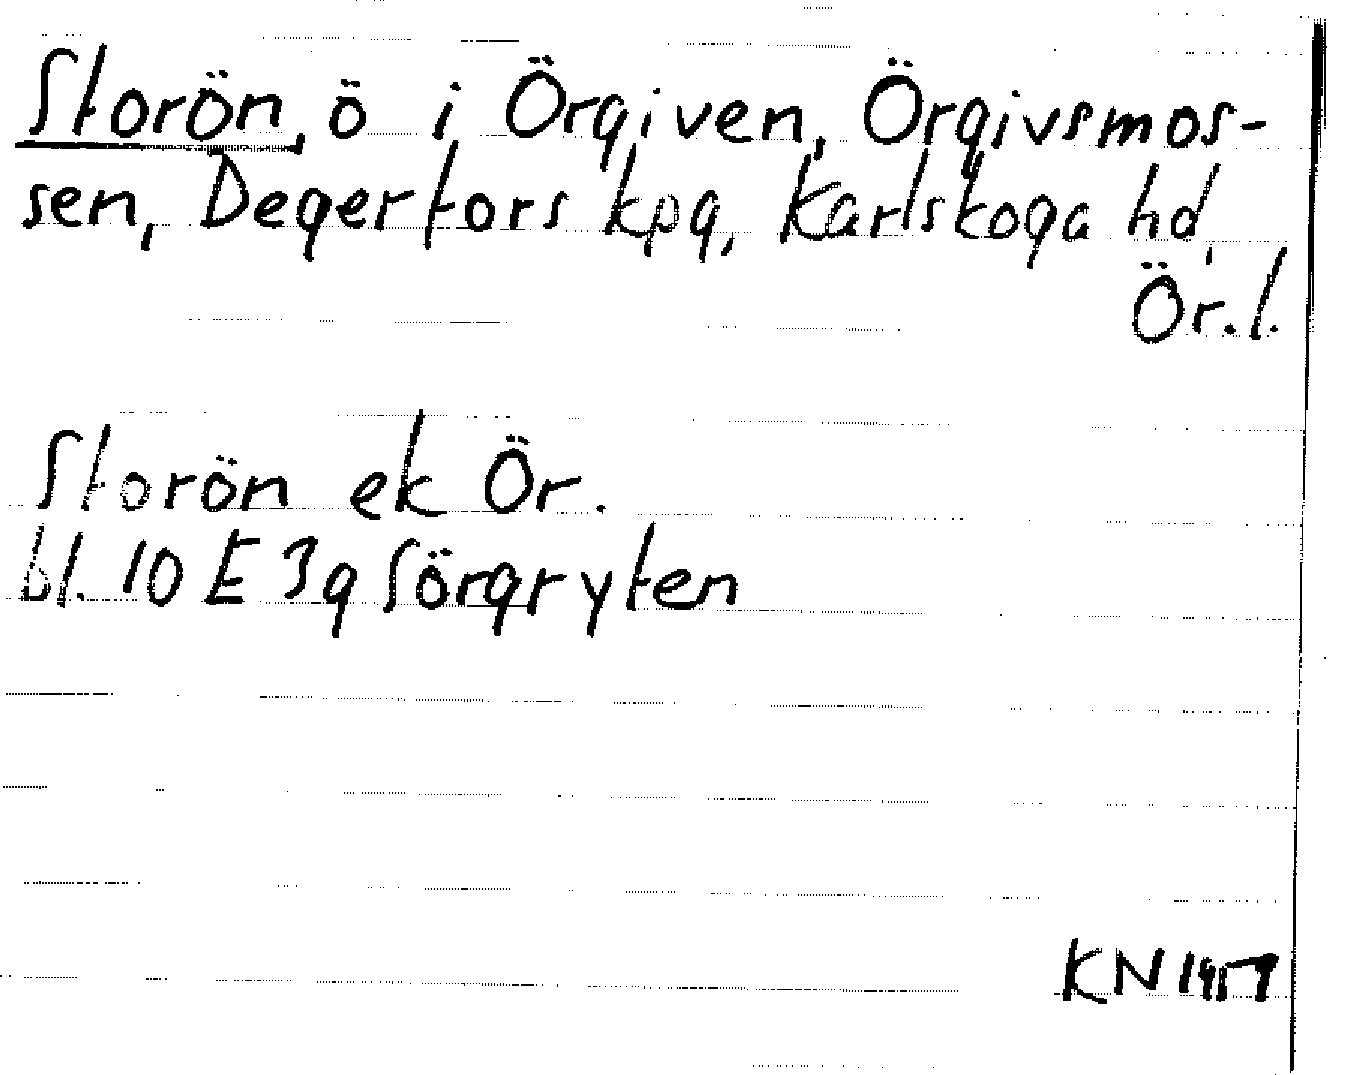 Storön, ö i Örgiven, Örgivsmos-
sen, Degerfors kpg, Karlskoga hd,
Ör.l.
Storön ek Ör.
bl. 10 E 3g Sörgryten
KN 1957